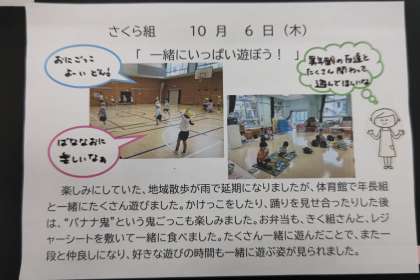 さくら組　10月　6日（木）
「 一緒にいっぱい遊ぼう！ 」
おにごっこ
よーい どん！
異年齢の友達と
たくさん関わって
遊んでほしいな
ばななおに
楽しいなぁ
楽しみにしていた、地域散歩が雨で延期になりましたが、体育館で年長組
と一緒にたくさん遊びました。かけっこをしたり、踊りを見せ合ったりした後
は、“バナナ鬼”という鬼ごっこも楽しみました。お弁当も、きく組さんと、レジ
ャーシートを敷いて一緒に食べました。たくさん一緒に遊んだことで、また一
段と仲良しになり、好きな遊びの時間も一緒に遊ぶ姿が見られました。